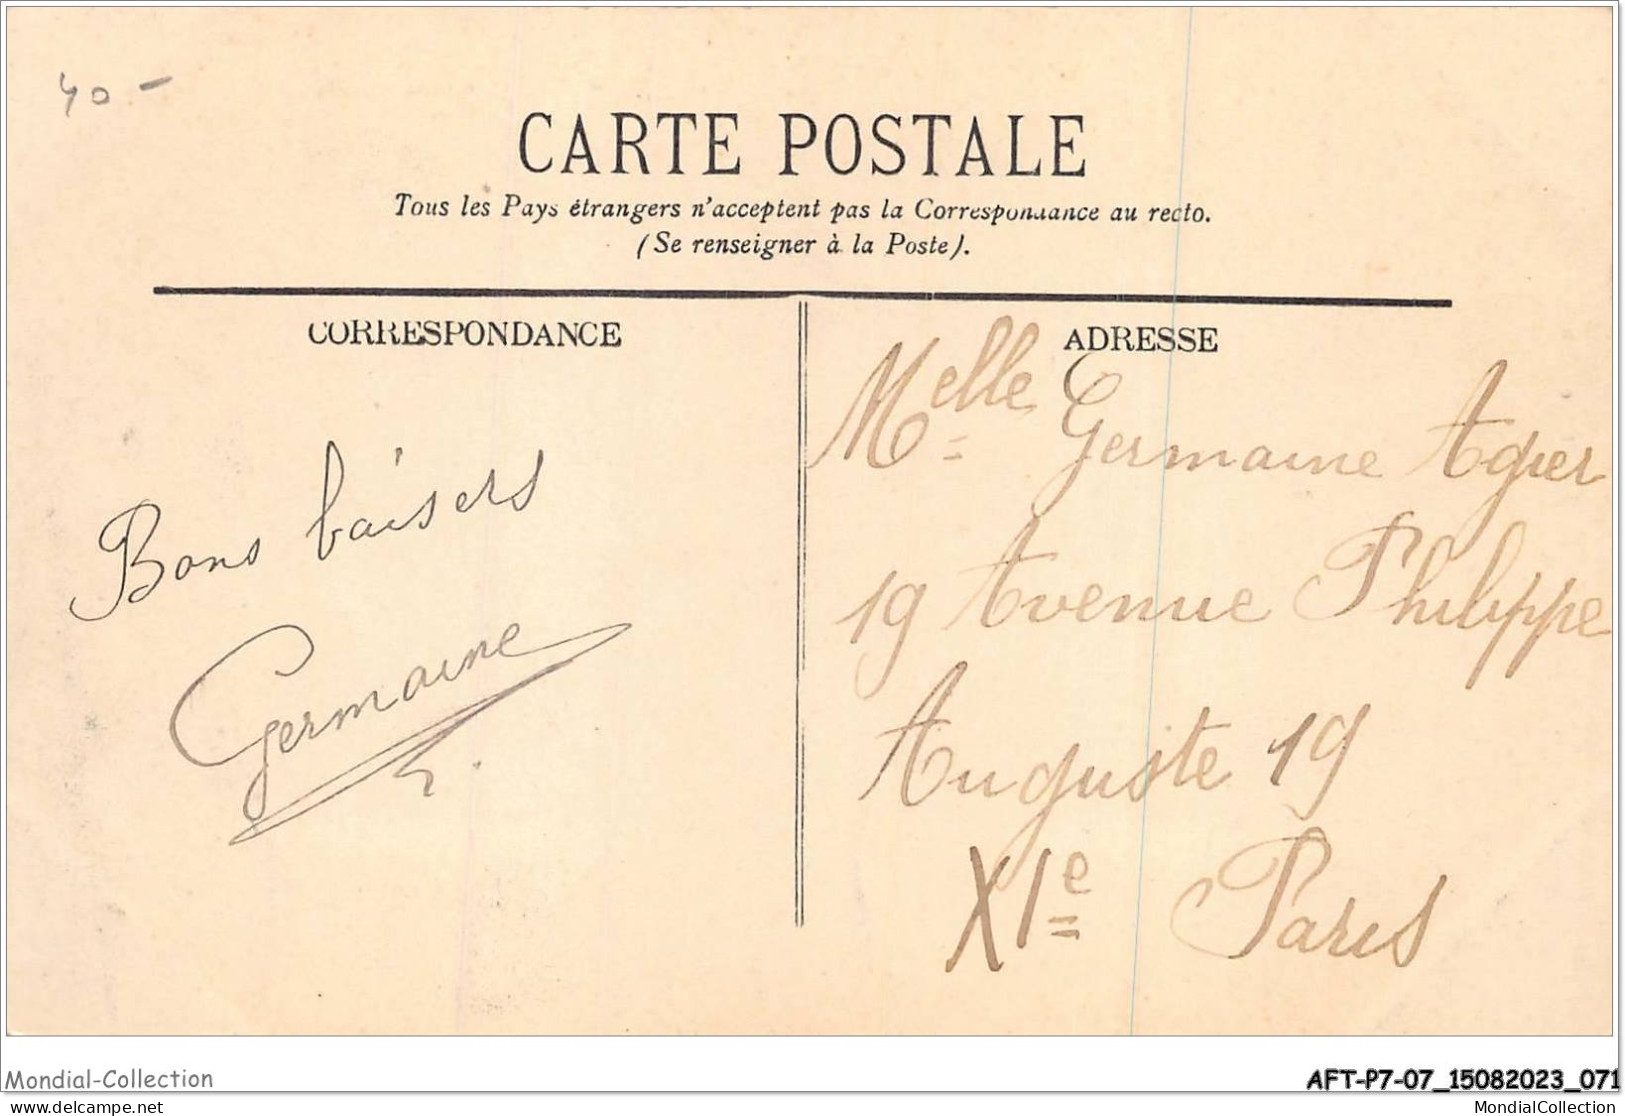 40 -
CARTE POSTALE
Tous les Pays étrangers n'acceptent pas la Correspondance au recto.
(Se renseigner à la Poste).
CORRESPONDANCE
Bons baisers
Germaine
ADRESSE
Melle Germaine Agier
19 Avenue Philippe
Auguste 19
XIe Paris
Mondial-Collection
AFT-P7-07_15082023_071
delcampe.net
MondialCollection